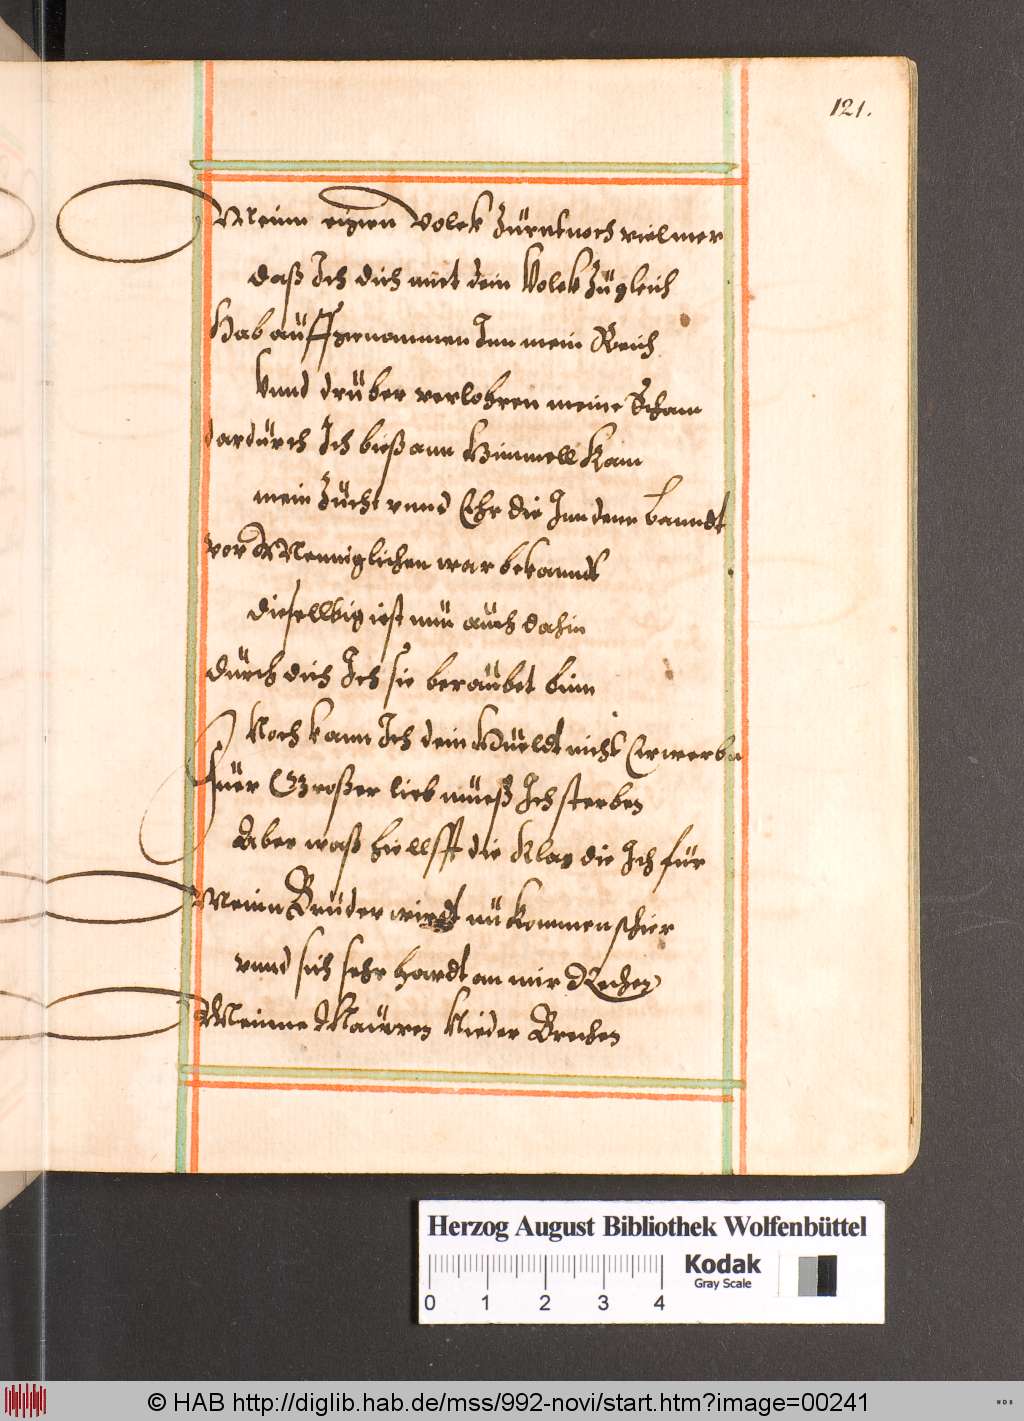 121.
Meinn eigen Volck Zürnt noch viel mer
daß Ich dich mit dein Volck Zügleich
Hab auffgenommen Inn mein Reich
Vnnd drüber verlohren meine Scham
dardürch Ich bieß ann Himmell Kam
mein Zücht vnnd Ehr die Inn denn Lanndt
vor Menniglichen war bekanndt
diesellbig ist nun auch dahin
dürch dich Ich sie beraübet binn
Noch kann Ich dein Hüeldt nicht Erwerbn
Füer Großer lieb müeß Ich sterben
Aber waß hiellfft die Klag die Ich für
Meinn Brüder wirdt nü kommen schier
vnnd sich sehr hardt an mir Rechen
Meinne Maüren Nieder Brechen
Herzog August Bibliothek Wolfenbüttel
Kodak
Gray Scale
0 1 2 3 4
© HAB http://diglib.hab.de/mss/992-novi/start.htm?image=00241